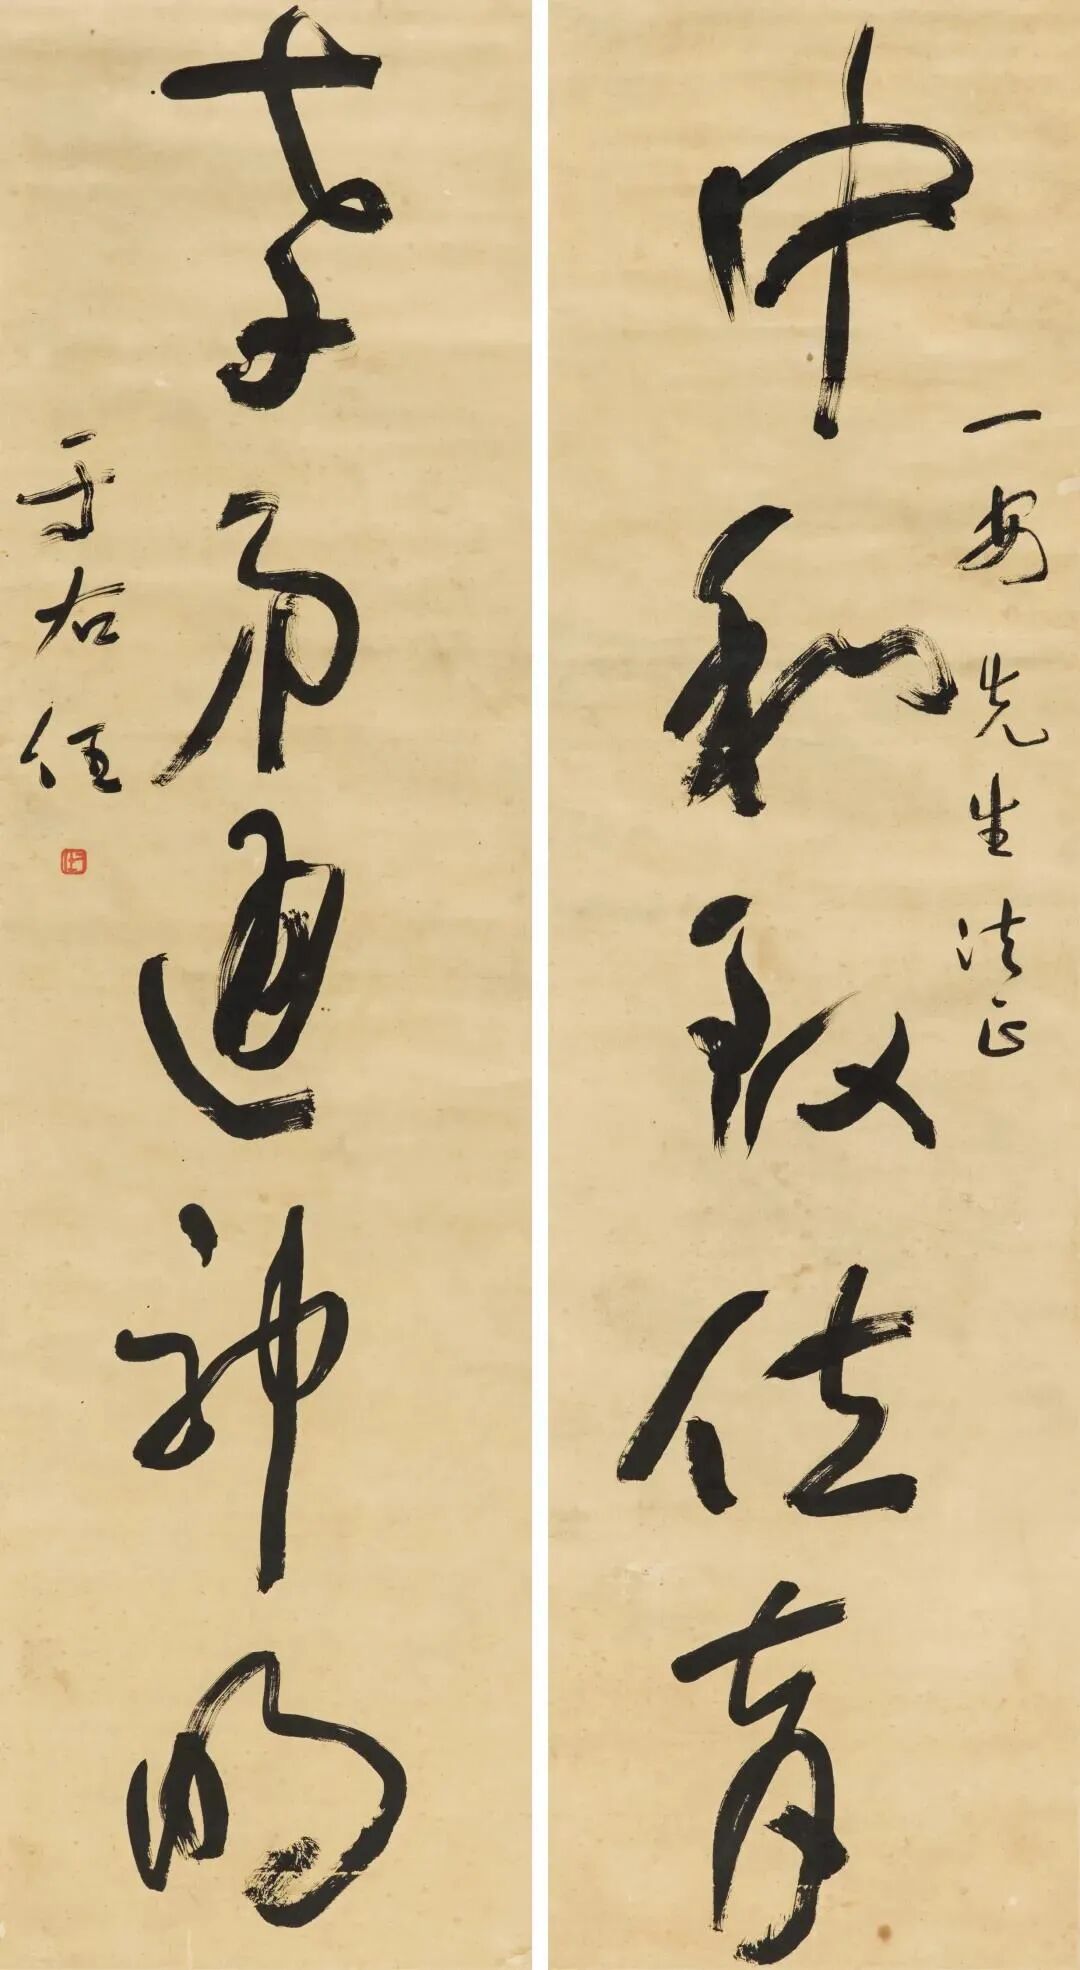 中和致位育
一安先生法正
孝弟通神明
于右任